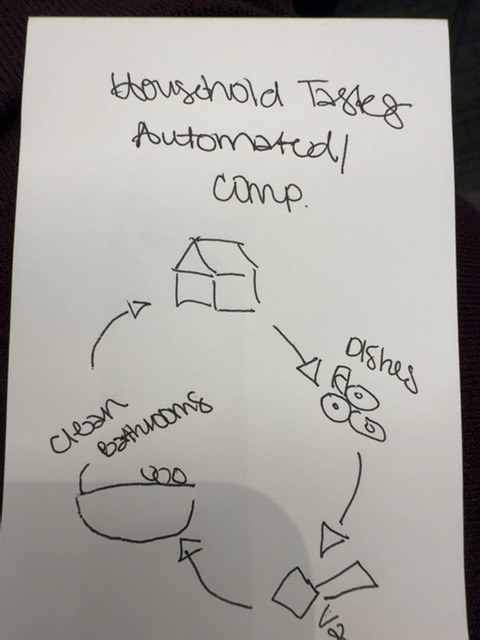 Household Tasks
Automated/
Comp.
Dishes
Clean
Bathrooms